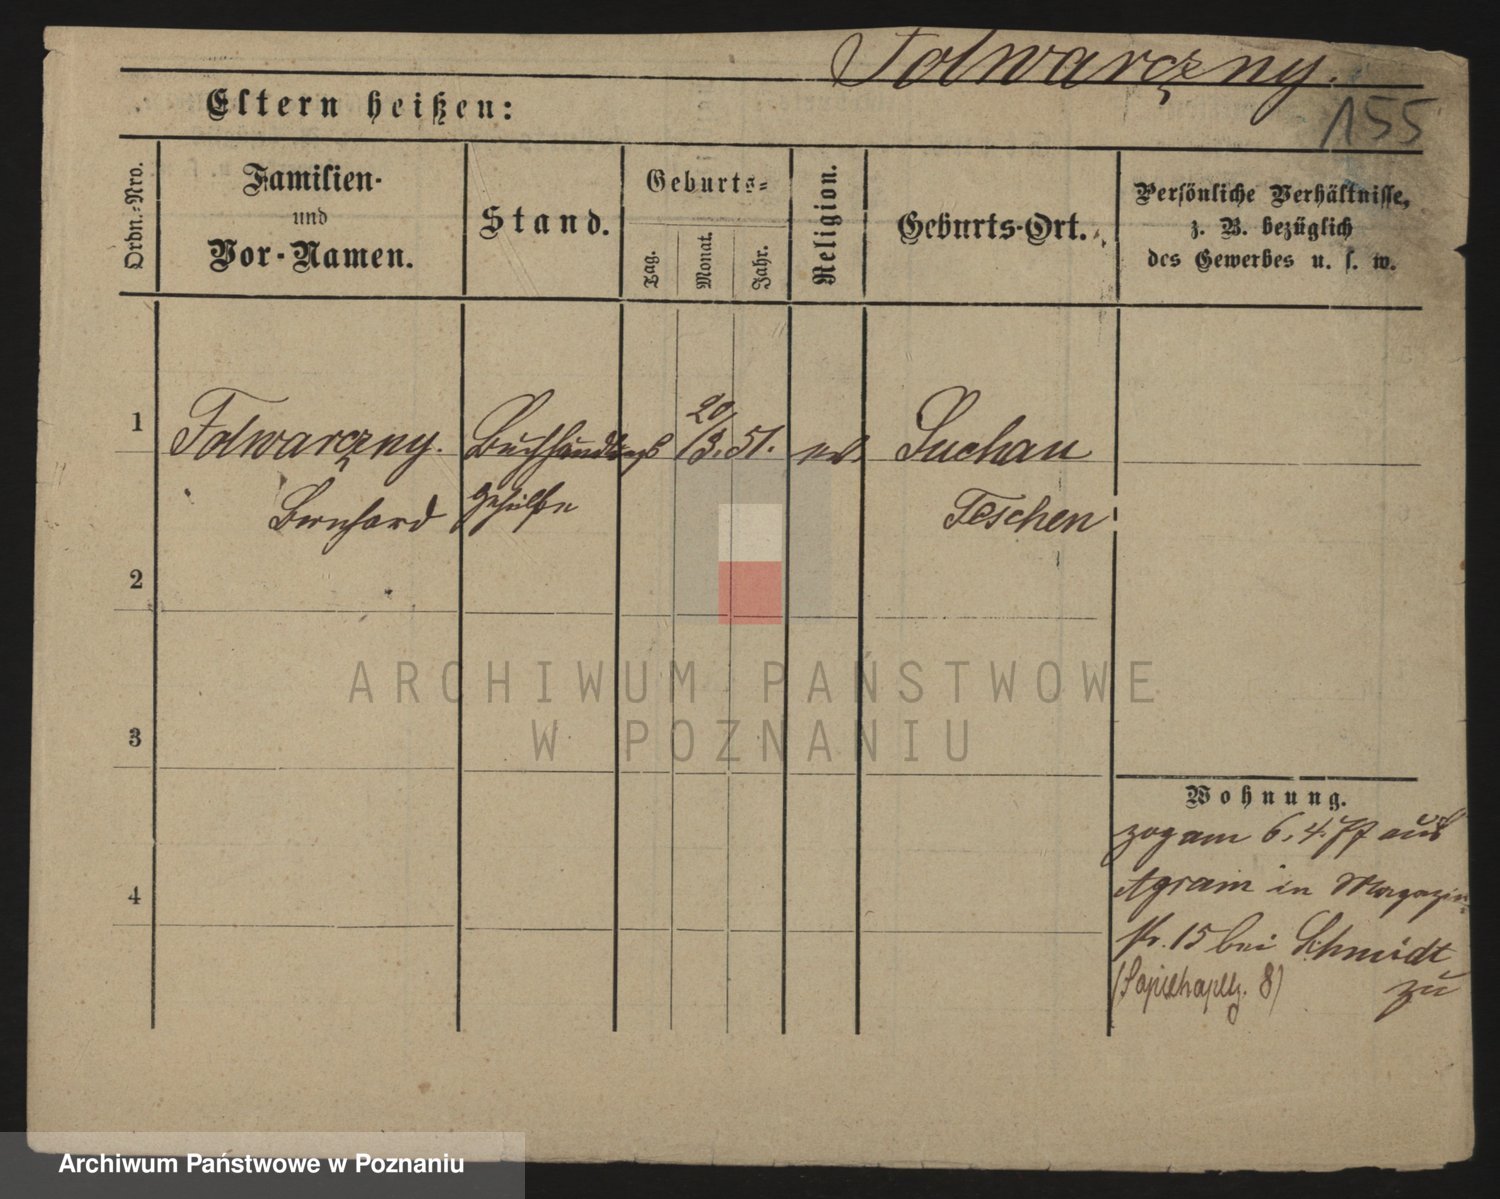 Folwarczny.
155
Eltern heißen:
Ordn.-Nro.
Familien-
und
Vor-Namen.
Stand.
Geburts-
Tag.
Monat.
Jahr.
Religion.
Geburts-Ort.
Persönliche Verhältnisse,
z. B. bezüglich
des Gewerbes u. s. w.
1
Folwarczny. Buchhandlungs 20/3. 51. ev. Suchau
Bernhard gehülfe Teschen
2
3
4
ARCHIWUM PAŃSTWOWE
W POZNANIU
Wohnung.
zog am 6. 4. 77 aus
Agram in Magazin-
str. 15 bei Schmidt
(Sapiehapltz. 8) zu
Archiwum Państwowe w Poznaniu